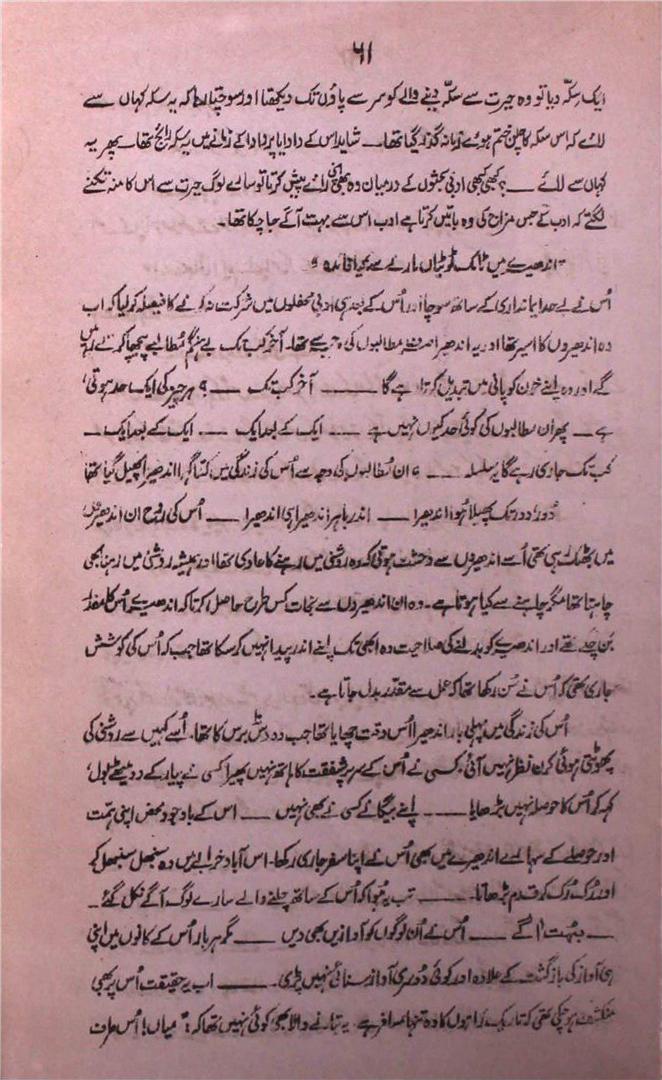 ۶۱
ایک سکّہ دیا تو وہ حیرت سے سکّہ دینے والے کو سر سے پاؤں تک دیکھتا اور سوچتا رہا کہ یہ سکہ کہاں سے
لائے کہ اس سکہ کا چلن ختم ہوئے زمانہ گذر گیا تھا ــــ شاید اس کے دادا یا پردادا کے زمانے میں یہ سکہ رائج تھا ــ پھر یہ
کہاں سے لائے ــــ ؟ کبھی کبھی ادبی بحثوں کے درمیان وہ بھی اپنی رائے پیش کرتا تو سارے لوگ حیرت سے اس کا منہ تکنے
لگتے کہ ادب کے جس مزاج کی وہ باتیں کرتا ہے ادب اس سے بہت آگے جا چکا تھا۔
"اندھیرے میں ٹامک ٹوئیاں مارنے سے کیا فائدہ"
اُس نے بے حد ایمانداری کے ساتھ سوچا اور اُس کے بعد ہی ادبی محفلوں میں شرکت نہ کرنے کا فیصلہ کر لیا کہ اب
وہ اندھیروں کا اسیر تھا اور یہ اندھیرا صرف مطالبوں کی وجہ سے تھا۔ آخر کب تک بے ہنگم مطالبے پیچھا کرتے رہیں
گے اور وہ اپنے خون کو پانی میں تبدیل کرتا رہے گا ــــــ آخر کب تک ــــ ؟ ہر چیز کی ایک حد ہوتی
ہے ــ پھر ان مطالبوں کی کوئی حد کیوں نہیں ہے ــــ ایک کے بعد ایک ــــ ایک کے بعد ایک ــ
کب تک جاری رہے گا یہ سلسلہ ــــ ؟ ان مطالبوں کی وجہ سے اُس کی زندگی میں کتنا گہرا اندھیرا پھیل گیا تھا
دُور دُور تک پھیلا ہوا اندھیرا ــــ اندر باہر اندھیرا ہی اندھیرا ــــ اُس کی روح ان اندھیروں
میں بھٹک رہی تھی اُسے اندھیروں سے وحشت ہوتی کہ وہ روشنی میں رہنے کا عادی تھا اور ہمیشہ روشنی میں رہنا بھی
چاہتا تھا مگر چاہنے سے کیا ہوتا ہے۔ وہ ان اندھیروں سے نجات کس طرح حاصل کرتا کہ اندھیرے اُس کا مقدر
بن چکے تھے اور اندھیرے کو بدلنے کی صلاحیت وہ ابھی تک اپنے اندر پیدا نہیں کر سکا تھا جب کہ اُس کی کوشش
جاری تھی کہ اُس نے سُن رکھا تھا کہ عمل سے مقدر بدل جاتا ہے۔
اُس کی زندگی میں پہلی بار اندھیرا اُس وقت چھایا تھا جب وہ دس برس کا تھا۔ اُسے کہیں سے روشنی کی
پھوٹتی ہوئی کرن نظر نہیں آئی، کسی نے اُس کے سر پر شفقت کا ہاتھ نہیں پھیرا کسی نے پیار کے دو میٹھے بول
کہہ کر اُس کا حوصلہ نہیں بڑھایا ــــــ اپنے بیگانے کسی نے بھی نہیں ــــ اس کے باوجود محض اپنی ہمت
اور حوصلے کے سہارے اندھیرے میں بھی اُس نے اپنا سفر جاری رکھا۔ اس آباد خرابے میں وہ سنبھل سنبھل کر
اور رُک رُک کر قدم بڑھاتا۔ ــــــ تب یہ ہُوا کہ اُس کے ساتھ چلنے والے سارے لوگ آگے نکل گئے ــ
ــــ بہت آگے ــــ اُس نے اُن لوگوں کو آوازیں بھی دیں ــــ مگر ہر بار اُس کے کانوں میں اپنی
ہی آواز کی بازگشت کے علاوہ اور کوئی دوسری آواز سنائی نہیں پڑی۔ ــــ اب یہ حقیقت اُس پر بھی
منکشف ہو چکی تھی کہ تاریک راہوں کا وہ تنہا مسافر ہے۔ یہ بتانے والا بھی کوئی نہیں تھا کہ: "میاں! اُس طرف